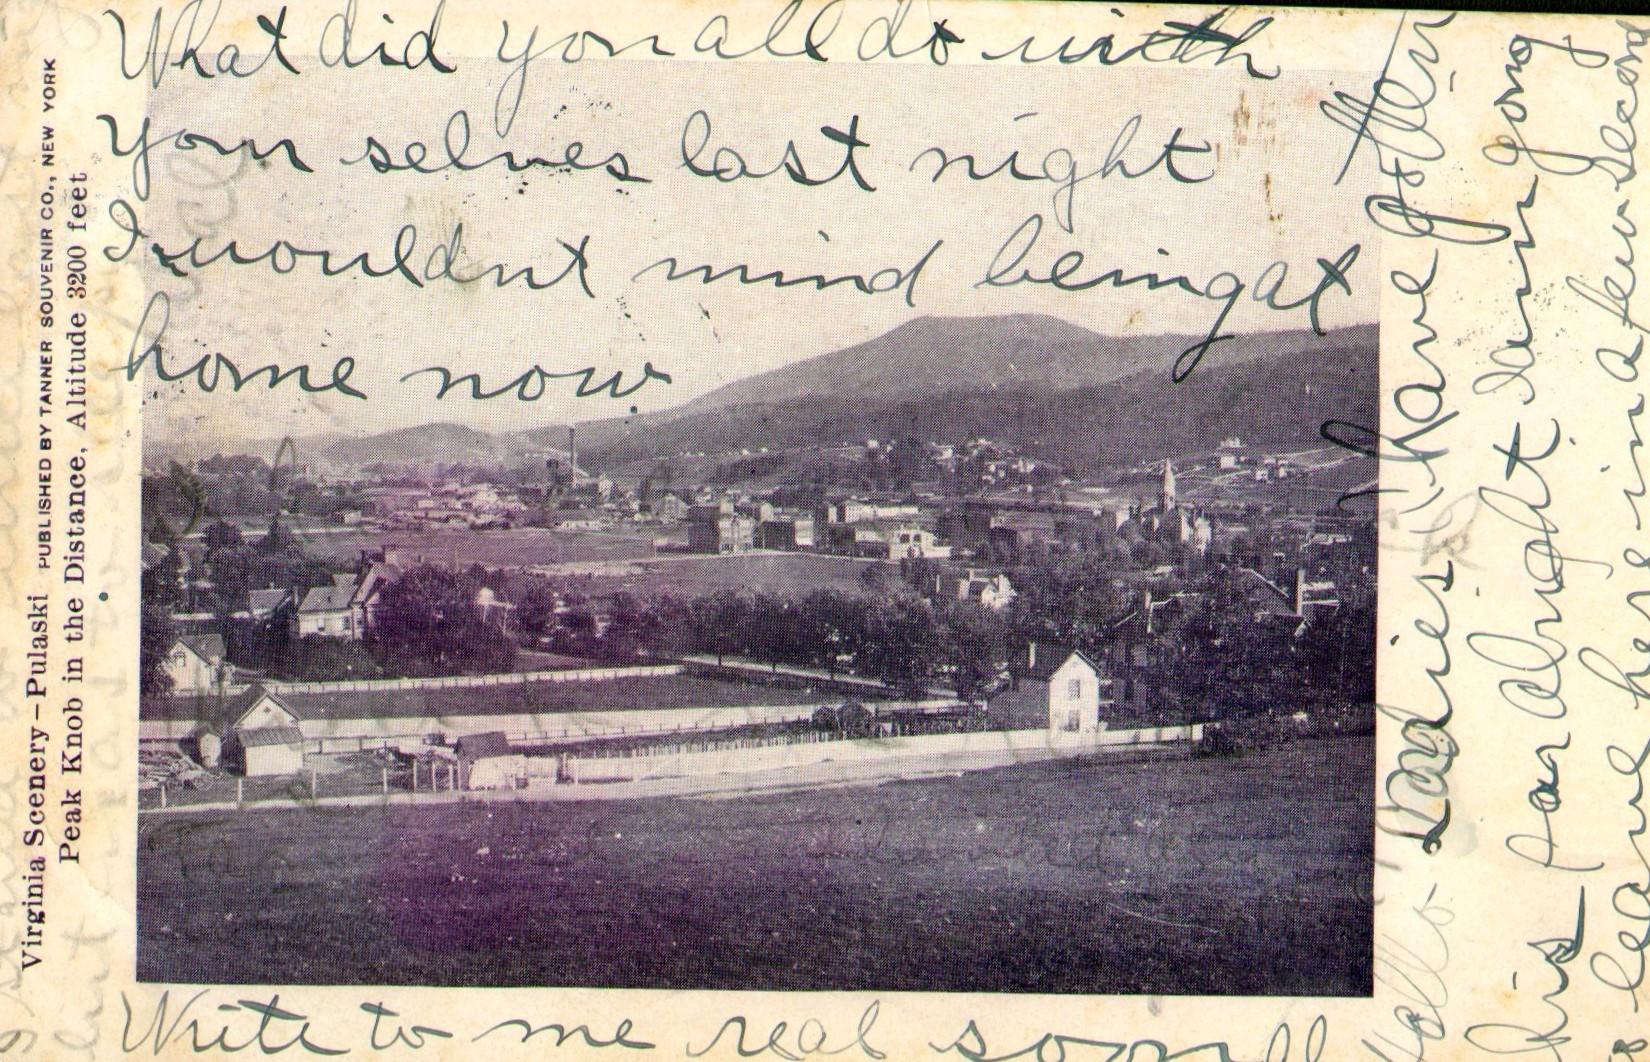 What did you all do with
your selves last night
I wouldnt mind being at
home now.
Write to me real soon
Hello Ladies, I have gotten
this far alright I am going
to leave here in a few second
Virginia Scenery – Pulaski PUBLISHED BY TANNER SOUVENIR CO., NEW YORK
Peak Knob in the Distance, Altitude 3200 feet